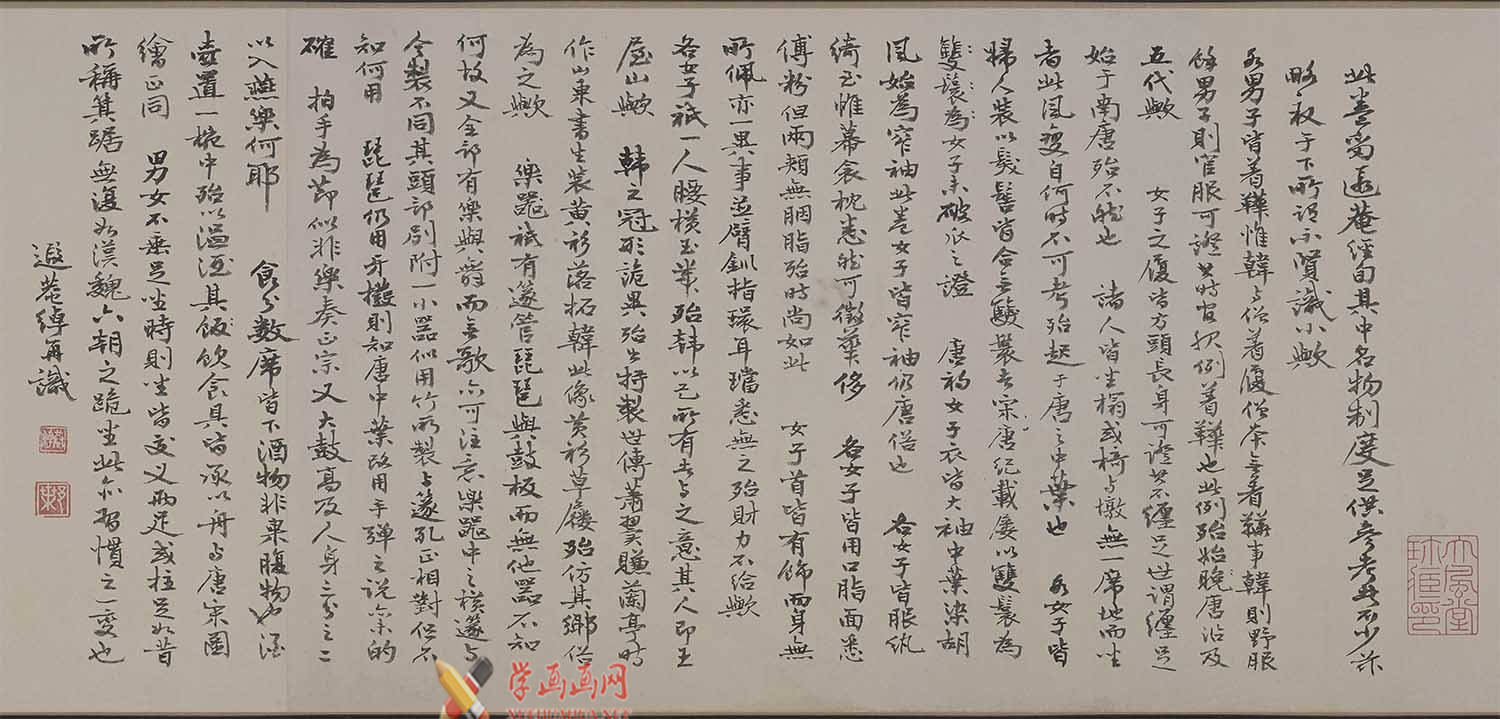 此卷当退庵經自其中名物制度足供參考者不少茲
略收于下所謂不賢識小歟
各男子皆着鞾惟韓与俗著履僧亦無着鞾事韓則野服
餘男子則官服可證其時官服例着鞾也此例殆始晚唐沿及
五代歟 女子之履皆方頭長身可證其不纏足世謂纏足
始于南唐殆不然也 諸人皆坐榻或椅与墩無一席地而坐
者此風變自何時不可考殆起于唐之中葉也 各女子皆
婦人裝以髮髻皆合無鬖鬖者宋唐紀載屢以雙鬟為
雙鬟為女子未破瓜之證 唐初女子衣皆大袖中葉染胡
風始為窄袖此卷女子皆窄袖仍唐俗也 各女子皆服紈
綺至惟幕衾枕悉然可徵蕐侈 各女子皆用口脂面悉
傅粉但兩頰無胭脂殆時尚如此 女子首皆有飾而身無
所佩亦一異事並臂釧指環耳璫悉無之殆財力不給歟
各女子祇一人腰橫玉案殆韓以己所有者与之意其人即王
屋山歟 韓之冠形詭異殆出特製世傳蕭翼賺蘭亭時
作山東書生裝黄衫落拓韓此像黄衫草屨殆仿其鄉俗
為之歟 樂器祇有篴管琵琶與鼓板而無他器不知
何故又全部有樂與舞而無歌亦可注意樂器中之橫篴与
今製不同其頭部別附一小器似用竹所製与篴孔正相對但不
知何用 琵琶仍用牙撥則知唐中葉改用手弹之説亦未的
確 拍手為節似非樂奏正宗又大鼓高及人身三分之二
以入燕樂何耶 食分数席皆下酒物非果腹物也酒
壺置一椀中殆以温酒其飯飲食具皆承以舟与唐宋圖
繪正同 男女不垂足坐時則坐皆交义兩足或拄足如昔
所稱箕踞無復如漢魏六朝之跪坐此亦習慣之一變也
遐菴綽再識
大風堂
珍藏印
学画画网